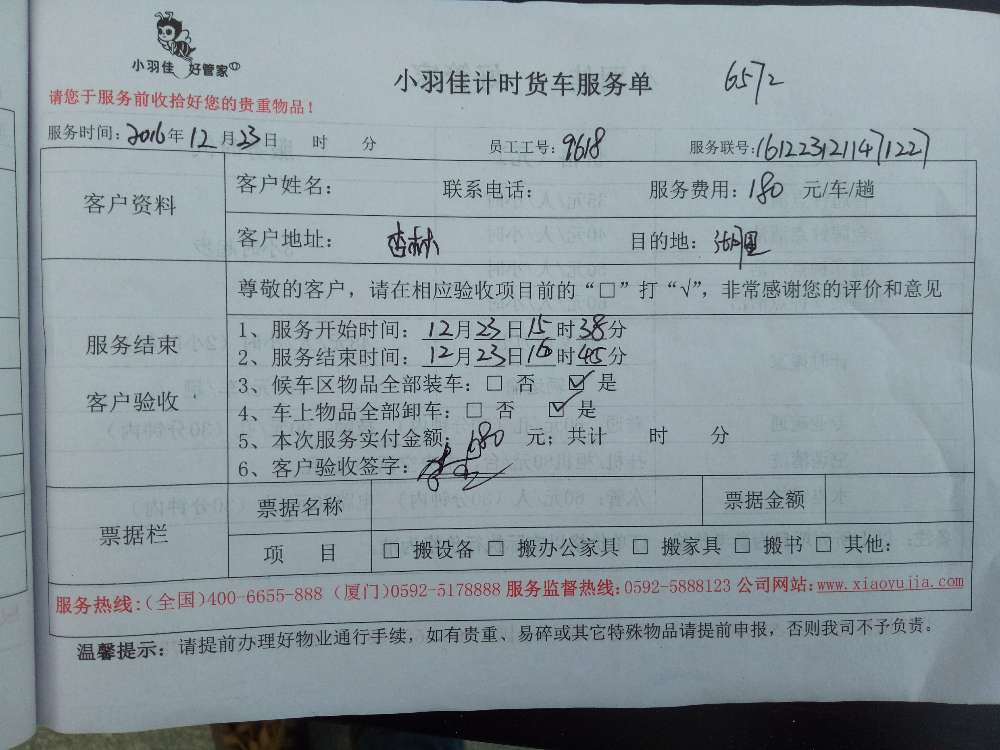 小羽佳 好管家
小羽佳计时货车服务单 6572
请您于服务前收拾好您的贵重物品！
服务时间：2016年12月23日 时 分 员工工号：9618 服务联号：1612231211471227
客户资料 客户姓名： 联系电话： 服务费用：180 元/车/趟
客户地址：杏林 目的地：湖里
尊敬的客户，请在相应验收项目前的“□”打“√”，非常感谢您的评价和意见
服务结束
客户验收
1、服务开始时间：12月23日15时38分
2、服务结束时间：12月23日16时45分
3、候车区物品全部装车：□ 否 ☑ 是
4、车上物品全部卸车：□ 否 ☑ 是
5、本次服务实付金额：180 元；共计 时 分
6、客户验收签字：
票据栏 票据名称 票据金额
项 目 □ 搬设备 □ 搬办公家具 □ 搬家具 □ 搬书 □ 其他：
服务热线：（全国）400-6655-888 （厦门）0592-5178888 服务监督热线：0592-5888123 公司网站：www.xiaoyujia.com
温馨提示：请提前办理好物业通行手续，如有贵重、易碎或其它特殊物品请提前申报，否则我司不予负责。